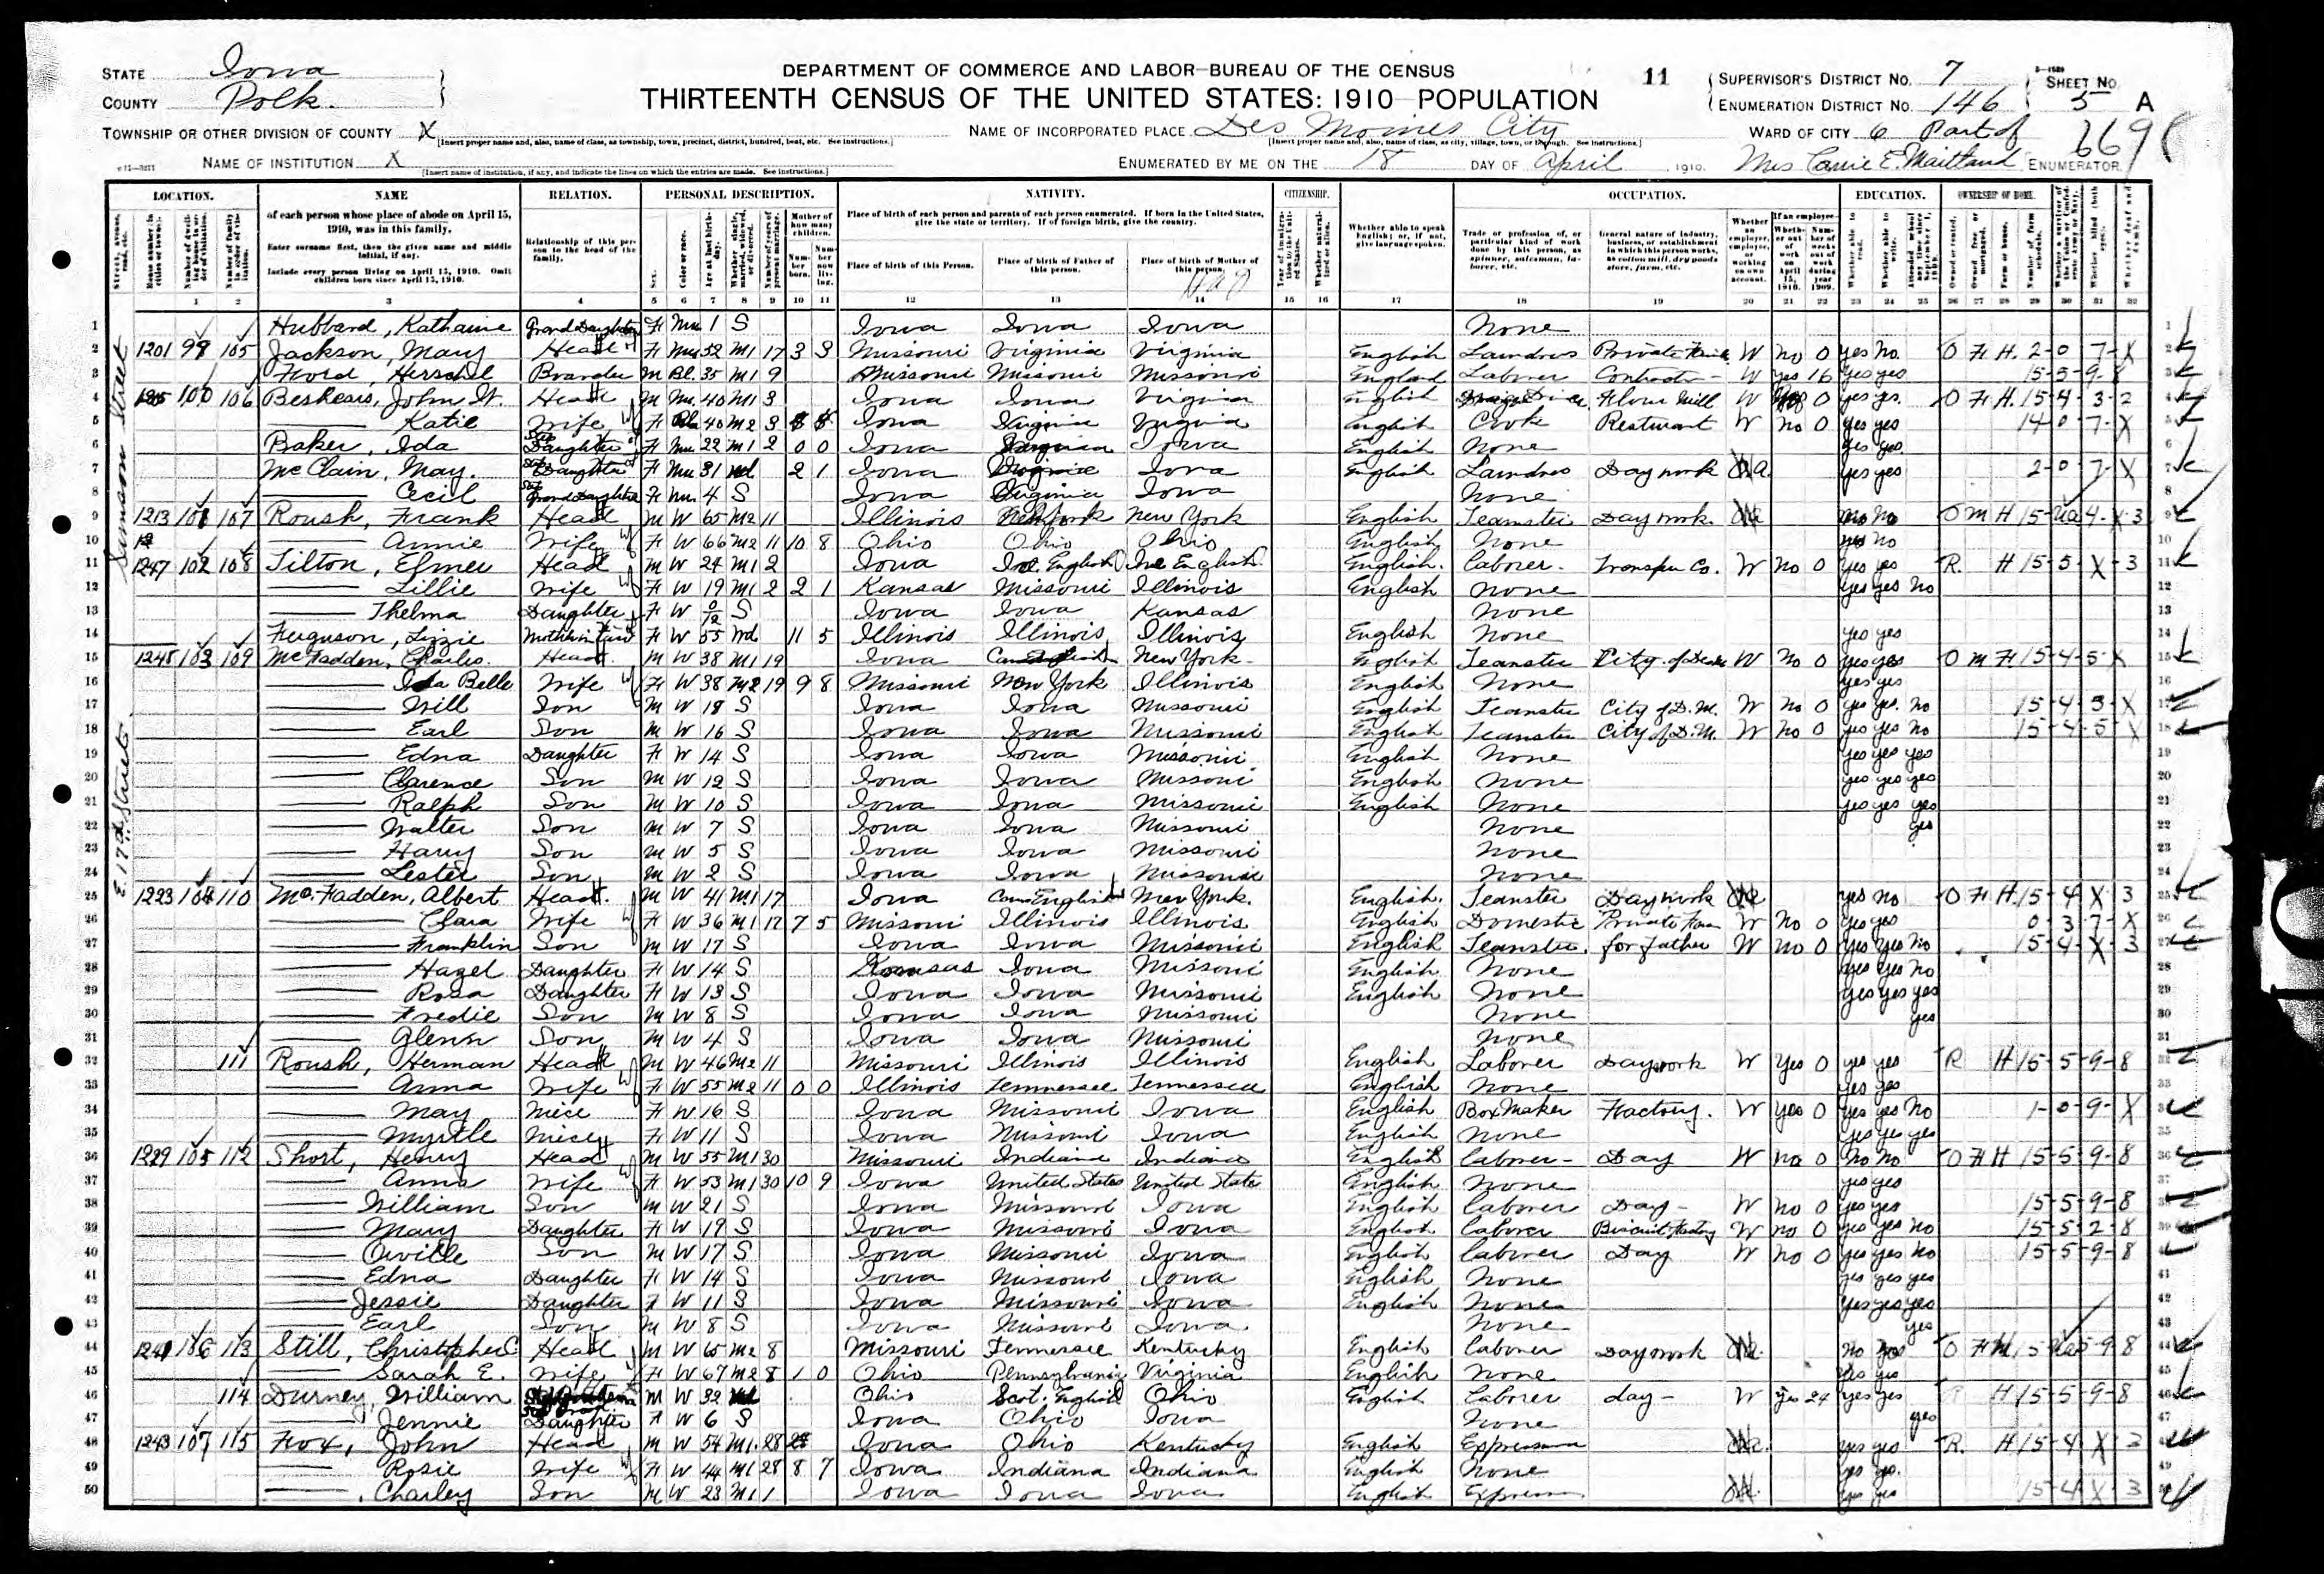 STATE Iowa
COUNTY Polk.
DEPARTMENT OF COMMERCE AND LABOR—BUREAU OF THE CENSUS
THIRTEENTH CENSUS OF THE UNITED STATES: 1910 POPULATION
11
SUPERVISOR'S DISTRICT NO. 7
ENUMERATION DISTRICT NO. 146
SHEET NO. 5 A
TOWNSHIP OR OTHER DIVISION OF COUNTY X
NAME OF INCORPORATED PLACE Des Moines City
WARD OF CITY 6 Part of
669
NAME OF INSTITUTION X
ENUMERATED BY ME ON THE 18 DAY OF April, 1910. Mrs Carrie E. Maitland ENUMERATOR
LOCATION. NAME RELATION. PERSONAL DESCRIPTION. NATIVITY. CITIZENSHIP. OCCUPATION. EDUCATION. OWNERSHIP OF HOME.
of each person whose place of abode on April 15, 1910, was in this family.
Enter surname first, then the given name and middle initial, if any.
Include every person living on April 15, 1910. Omit children born since April 15, 1910.
Relationship of this person to the head of the family.
Place of birth of each person and parents of each person enumerated. If born in the United States, give the state or territory. If of foreign birth, give the country.
Place of birth of this Person. Place of birth of Father of this person. Place of birth of Mother of this person.
Whether able to speak English; or, if not, give language spoken.
1 2 3 4 5 6 7 8 9 10 11 12 13 14 15 16 17 18 19 20 21 22 23 24 25 26 27 28 29 30 31 32
Street
E. 17th Street
1 Hubbard, Grand Daughter F Mu 1 S Iowa Iowa Iowa None
2 1201 99 105 Jackson, Mary Head F Mu 52 M1 17 3 3 Missouri Virginia Virginia English Laundress Private W no 0 yes no O F H 2-0 7-X
3 Ford, Herschel Boarder M Bl. 35 M1 9 Missouri Missouri Missouri Laborer W yes 16 yes yes 15-5-9-8
4 100 106 John W. Head M Mu. 40 M1 3 Iowa Iowa Virginia English Flour Mill W 0 yes yes O F H. 15-4-3-2
5 Katie Wife F 40 M2 3 Iowa Virginia Virginia English Cook Resturant W no 0 yes yes 14-0-7-X
6 Baker, Ida Step Daughter F Mu 22 M1 2 0 0 Iowa Iowa English None yes yes
7 McClain, May. Step Daughter F Mu 31 wd 2 1 Iowa Iowa English Laundress Day work yes yes 2-0 7-X
8 Cecil Step Grand Daughter F Mu. 4 S Iowa Virginia Iowa None
9 1213 101 107 Roush, Frank Head M W 65 M2 11 Illinois New York New York English Teamster Day work. no no O M H
10 Annie Wife F W 66 M2 11 10 8 Ohio Ohio Ohio English None yes no
11 1247 102 108 Tilton, Elmer Head M W 24 M1 2 Iowa Ire English Ire English English. laborer. Transfer Co. W no 0 yes yes R. H 15-5 X-3
12 Lillie Wife F W 19 M1 2 2 1 Kansas Missouri Illinois English None yes yes no
13 Thelma Daughter F W 0/12 S Iowa Iowa Kansas None
14 Ferguson, Lizzie Mother in law F W 55 wd 11 5 Illinois Illinois Illinois English None yes yes
15 1245 103 109 McFadden, Charles. Head M W 38 M1 19 Iowa New York English Teamster W no 0 yes yes O M H 15-4-5-X
16 Ida Belle Wife F W 38 M2 19 9 8 Missouri New York Illinois English None yes yes
17 Will Son M W 18 S Iowa Iowa Missouri English Teamster City of D.M. W no 0 yes yes. no 15-4-5-X
18 Earl Son M W 16 S Iowa Iowa Missouri English Teamster City of D.M. W no 0 yes yes no 15-4-5-X
19 Edna Daughter F W 14 S Iowa Iowa Missouri English None yes yes yes
20 Clarence Son M W 12 S Iowa Iowa Missouri English None yes yes yes
21 Ralph Son M W 10 S Iowa Iowa Missouri English None yes yes yes
22 Walter Son M W 7 S Iowa Iowa Missouri None yes
23 Harry Son M W 5 S Iowa Iowa Missouri None
24 Lester Son M W 2 S Iowa Iowa Missouri None
25 1223 104 110 McFadden, Albert Head. M W 41 M1 17 Iowa Can English New York. English. Teamster Day work yes no O F H 15-4 X 3
26 Clara Wife F W 36 M1 17 7 5 Missouri Illinois Illinois English Domestic Private Fam W no 0 yes yes 0 3 7-X
27 Franklin Son M W 17 S Iowa Iowa Missouri English Teamster. for father W no 0 yes yes no 15-4-X-3
28 Hazel Daughter F W 14 S Kansas Iowa Missouri English None yes yes no
29 Rosa Daughter F W 13 S Iowa Iowa Missouri English None yes yes yes
30 Fredie Son M W 8 S Iowa Iowa Missouri None yes
31 Glenn Son M W 4 S Iowa Iowa Missouri None
32 111 Roush, Herman Head M W 46 M2 11 Missouri Illinois Illinois English Laborer Day work W yes 0 yes yes R H 15-5-9-8
33 Anna Wife F W 55 M2 11 0 0 Illinois Tennessee Tennessee English None yes yes
34 May Niece F W 16 S Iowa Missouri Iowa English Box Maker Factory. W yes 0 yes yes no 1-0-9-X
35 Myrtle Niece F W 11 S Iowa Missouri Iowa English None yes yes yes
36 1229 105 112 Short, Henry Head M W 55 M1 30 Missouri Indiana Indiana English laborer- Day W no 0 no no O F H 15-5-9-8
37 Anna Wife F W 53 M1 30 10 9 Iowa United States United State English None yes yes
38 William Son M W 21 S Iowa Missouri Iowa English laborer Day- W no 0 yes yes 15-5-9-8
39 Mary Daughter F W 19 S Iowa Missouri Iowa English laborer Biscuit Factory W no 0 yes yes no 15-5-2-8
40 Orville Son M W 17 S Iowa Missouri Iowa English laborer Day W no 0 yes yes no 15-5-9-8
41 Edna Daughter F W 14 S Iowa Missouri Iowa English None yes yes yes
42 Jessie Daughter F W 11 S Iowa Missouri Iowa English None yes yes yes
43 Earl Son M W 8 S Iowa Missouri Iowa None yes
44 1241 106 113 Still, Christopher C. Head M W 65 M2 8 Missouri Tennessee Kentucky English laborer Day work no O F H
45 Sarah E. Wife F W 67 M2 8 1 0 Ohio Pennsylvania Virginia English None yes yes
46 114 Durney, William M W 32 Ohio Scot. English Ohio English laborer day- W yes 24 yes yes R H 15-5-9-8
47 Jennie Daughter F W 6 S Iowa Ohio Iowa None yes
48 1243 107 115 Fox, John Head M W 54 M1 28 Iowa Ohio Kentucky English Expressman yes yes R. H 15-4 X 3
49 Rosie Wife F W 44 M1 28 8 7 Iowa Indiana Indiana English None yes yes.
50 Charley Son M W 23 M1 1 Iowa Iowa Iowa English yes yes 15-4 X-3